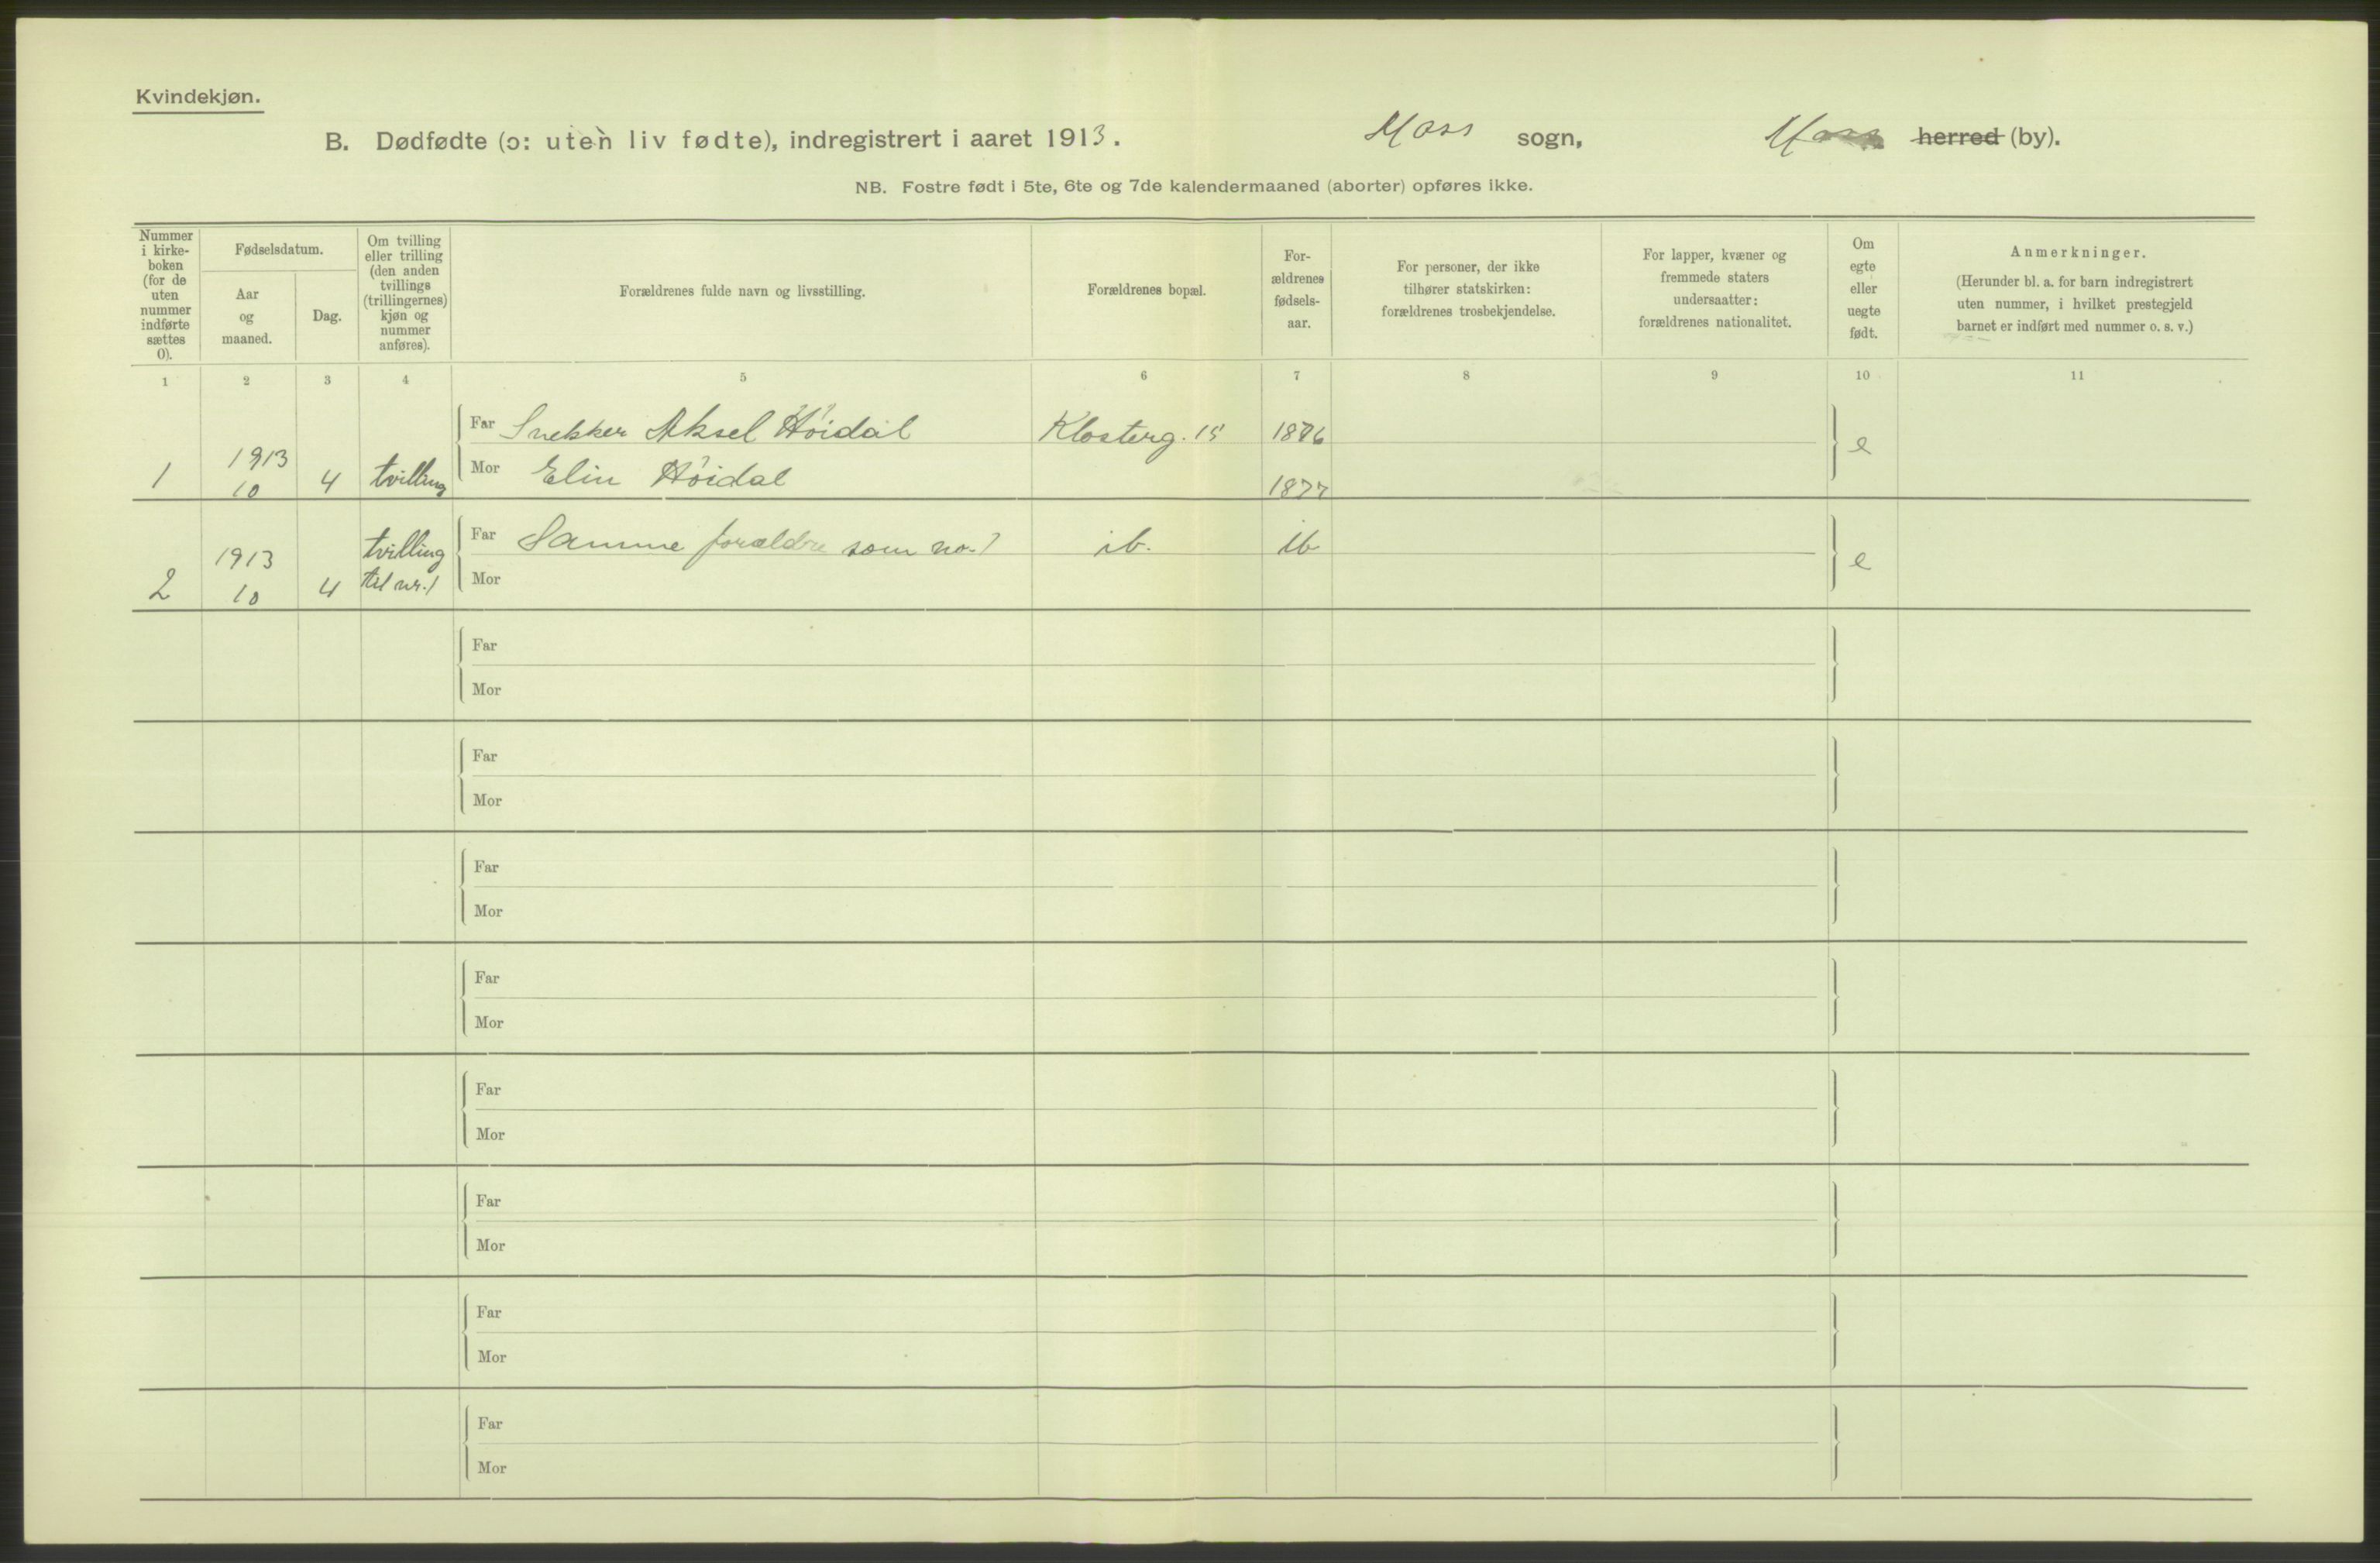 Kvindekjøn.
B. Dødfødte (ɔ: uten liv fødte), indregistrert i aaret 1913. Moss sogn, Moss herred (by).
NB. Fostre født i 5te, 6te og 7de kalendermaaned (aborter) opføres ikke.
Nummer i kirke-
boken
(for de
uten
nummer
indførte
sættes
0).
Fødselsdatum.
Aar
og
maaned.
Dag.
Om tvilling
eller trilling
(den anden
tvillings
(trillingernes)
kjøn og
nummer
anføres).
Forældrenes fulde navn og livsstilling.
Forældrenes bopæl.
For-
ældrenes
fødsels-
aar.
For personer, der ikke
tilhører statskirken:
forældrenes trosbekjendelse.
For lapper, kvæner og
fremmede staters
undersaatter:
forældrenes nationalitet.
Om
egte
eller
uegte
født.
Anmerkninger.
(Herunder bl. a. for barn indregistrert
uten nummer, i hvilket prestegjeld
barnet er indført med nummer o. s. v.)
1 2 3 4 5 6 7 8 9 10 11
Far Snekker Aksel Höidal Klosterg. 15 1876
1 1913 10 4 tvilling Mor Elin Höidal 1877 e
Far Samme forældre som no. 1 ib. ib
2 1913 10 4 tvilling til nr. 1 Mor e
Far
Mor
Far
Mor
Far
Mor
Far
Mor
Far
Mor
Far
Mor
Far
Mor
Far
Mor